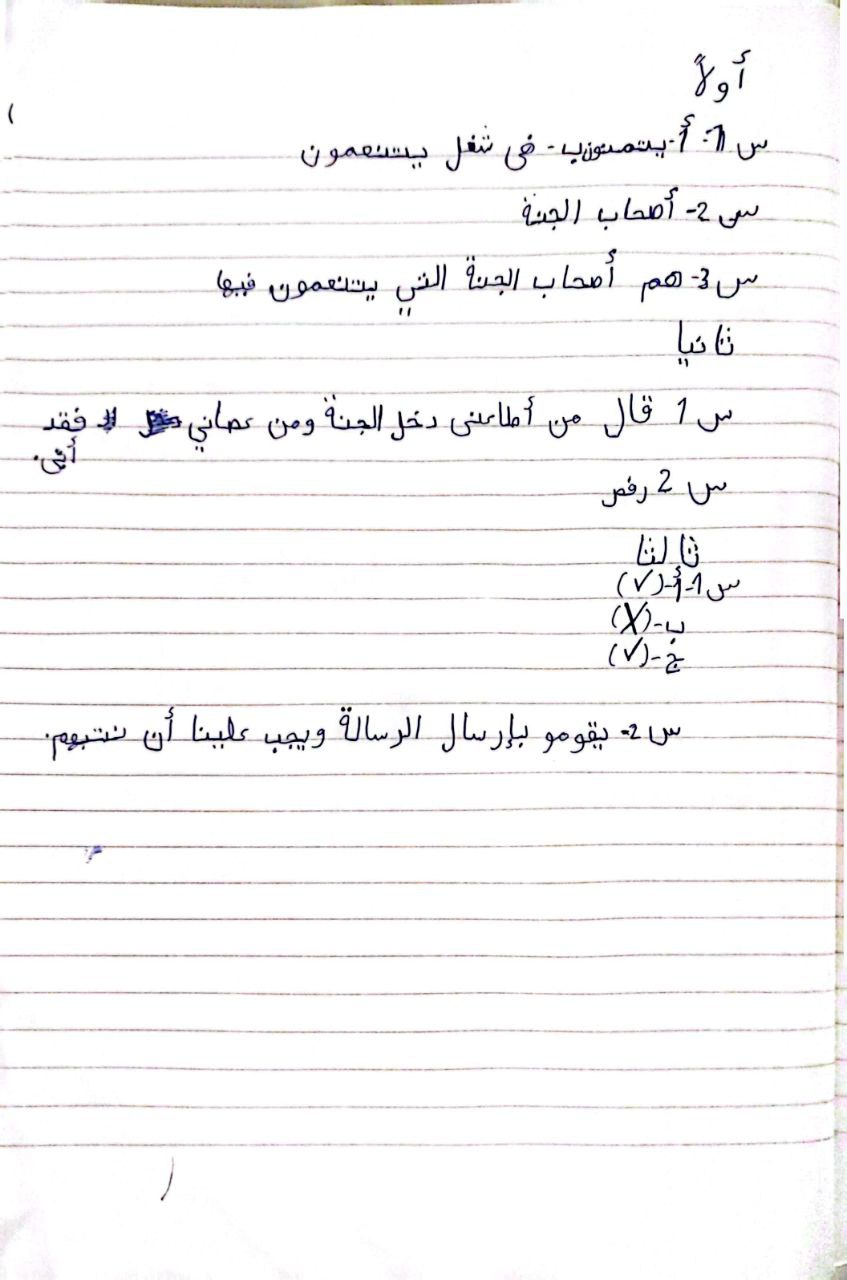 أولاً
س1- أ- يتمنون ب- في شغل يتنعمون
س2- أصحاب الجنة
س3- هم أصحاب الجنة التي يتنعمون فيها
ثانيا
س1 قال من أطاعني دخل الجنة ومن عصاني فقد
أبى.
س2 رفض
ثالثا
س1-أ-(✓)
ب-(X)
ج-(✓)
س2- يقومو بإرسال الرسالة ويجب علينا أن نتبهم.